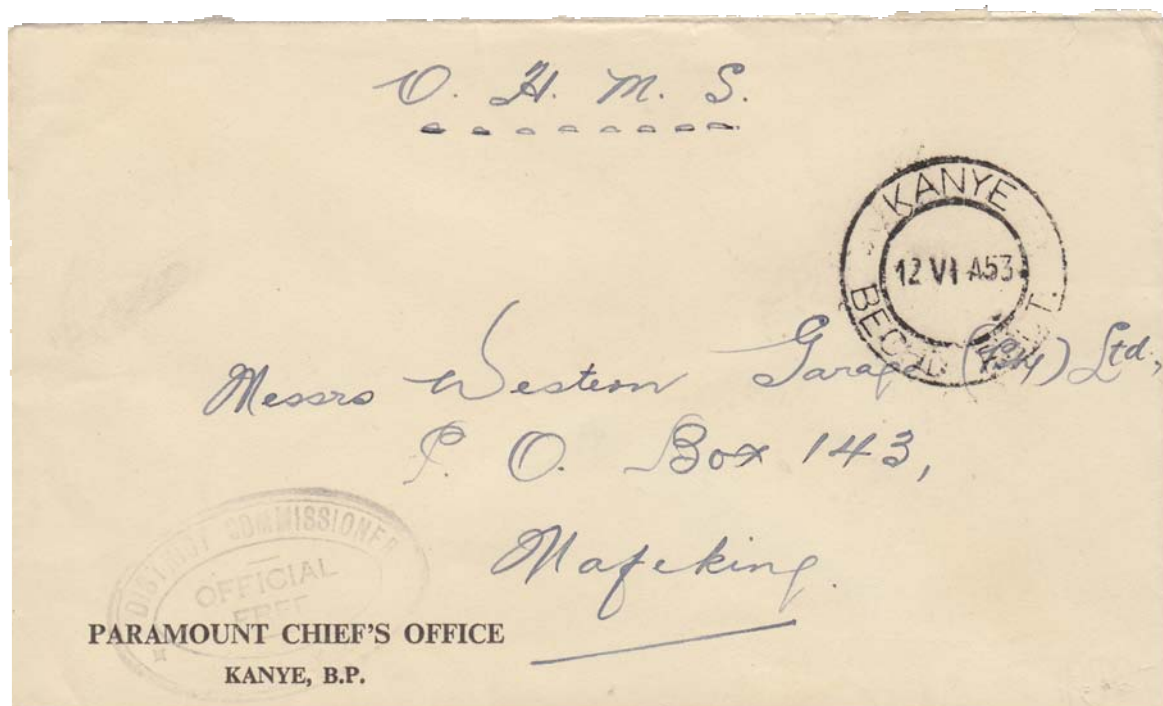 O. H. M. S.
KANYE
12 VI A53
Messrs Western Garage (Pty) Ltd,
P. O. Box 143,
Mafeking.
DISTRICT COMMISSIONER
OFFICIAL
FREE
PARAMOUNT CHIEF'S OFFICE
KANYE, B.P.